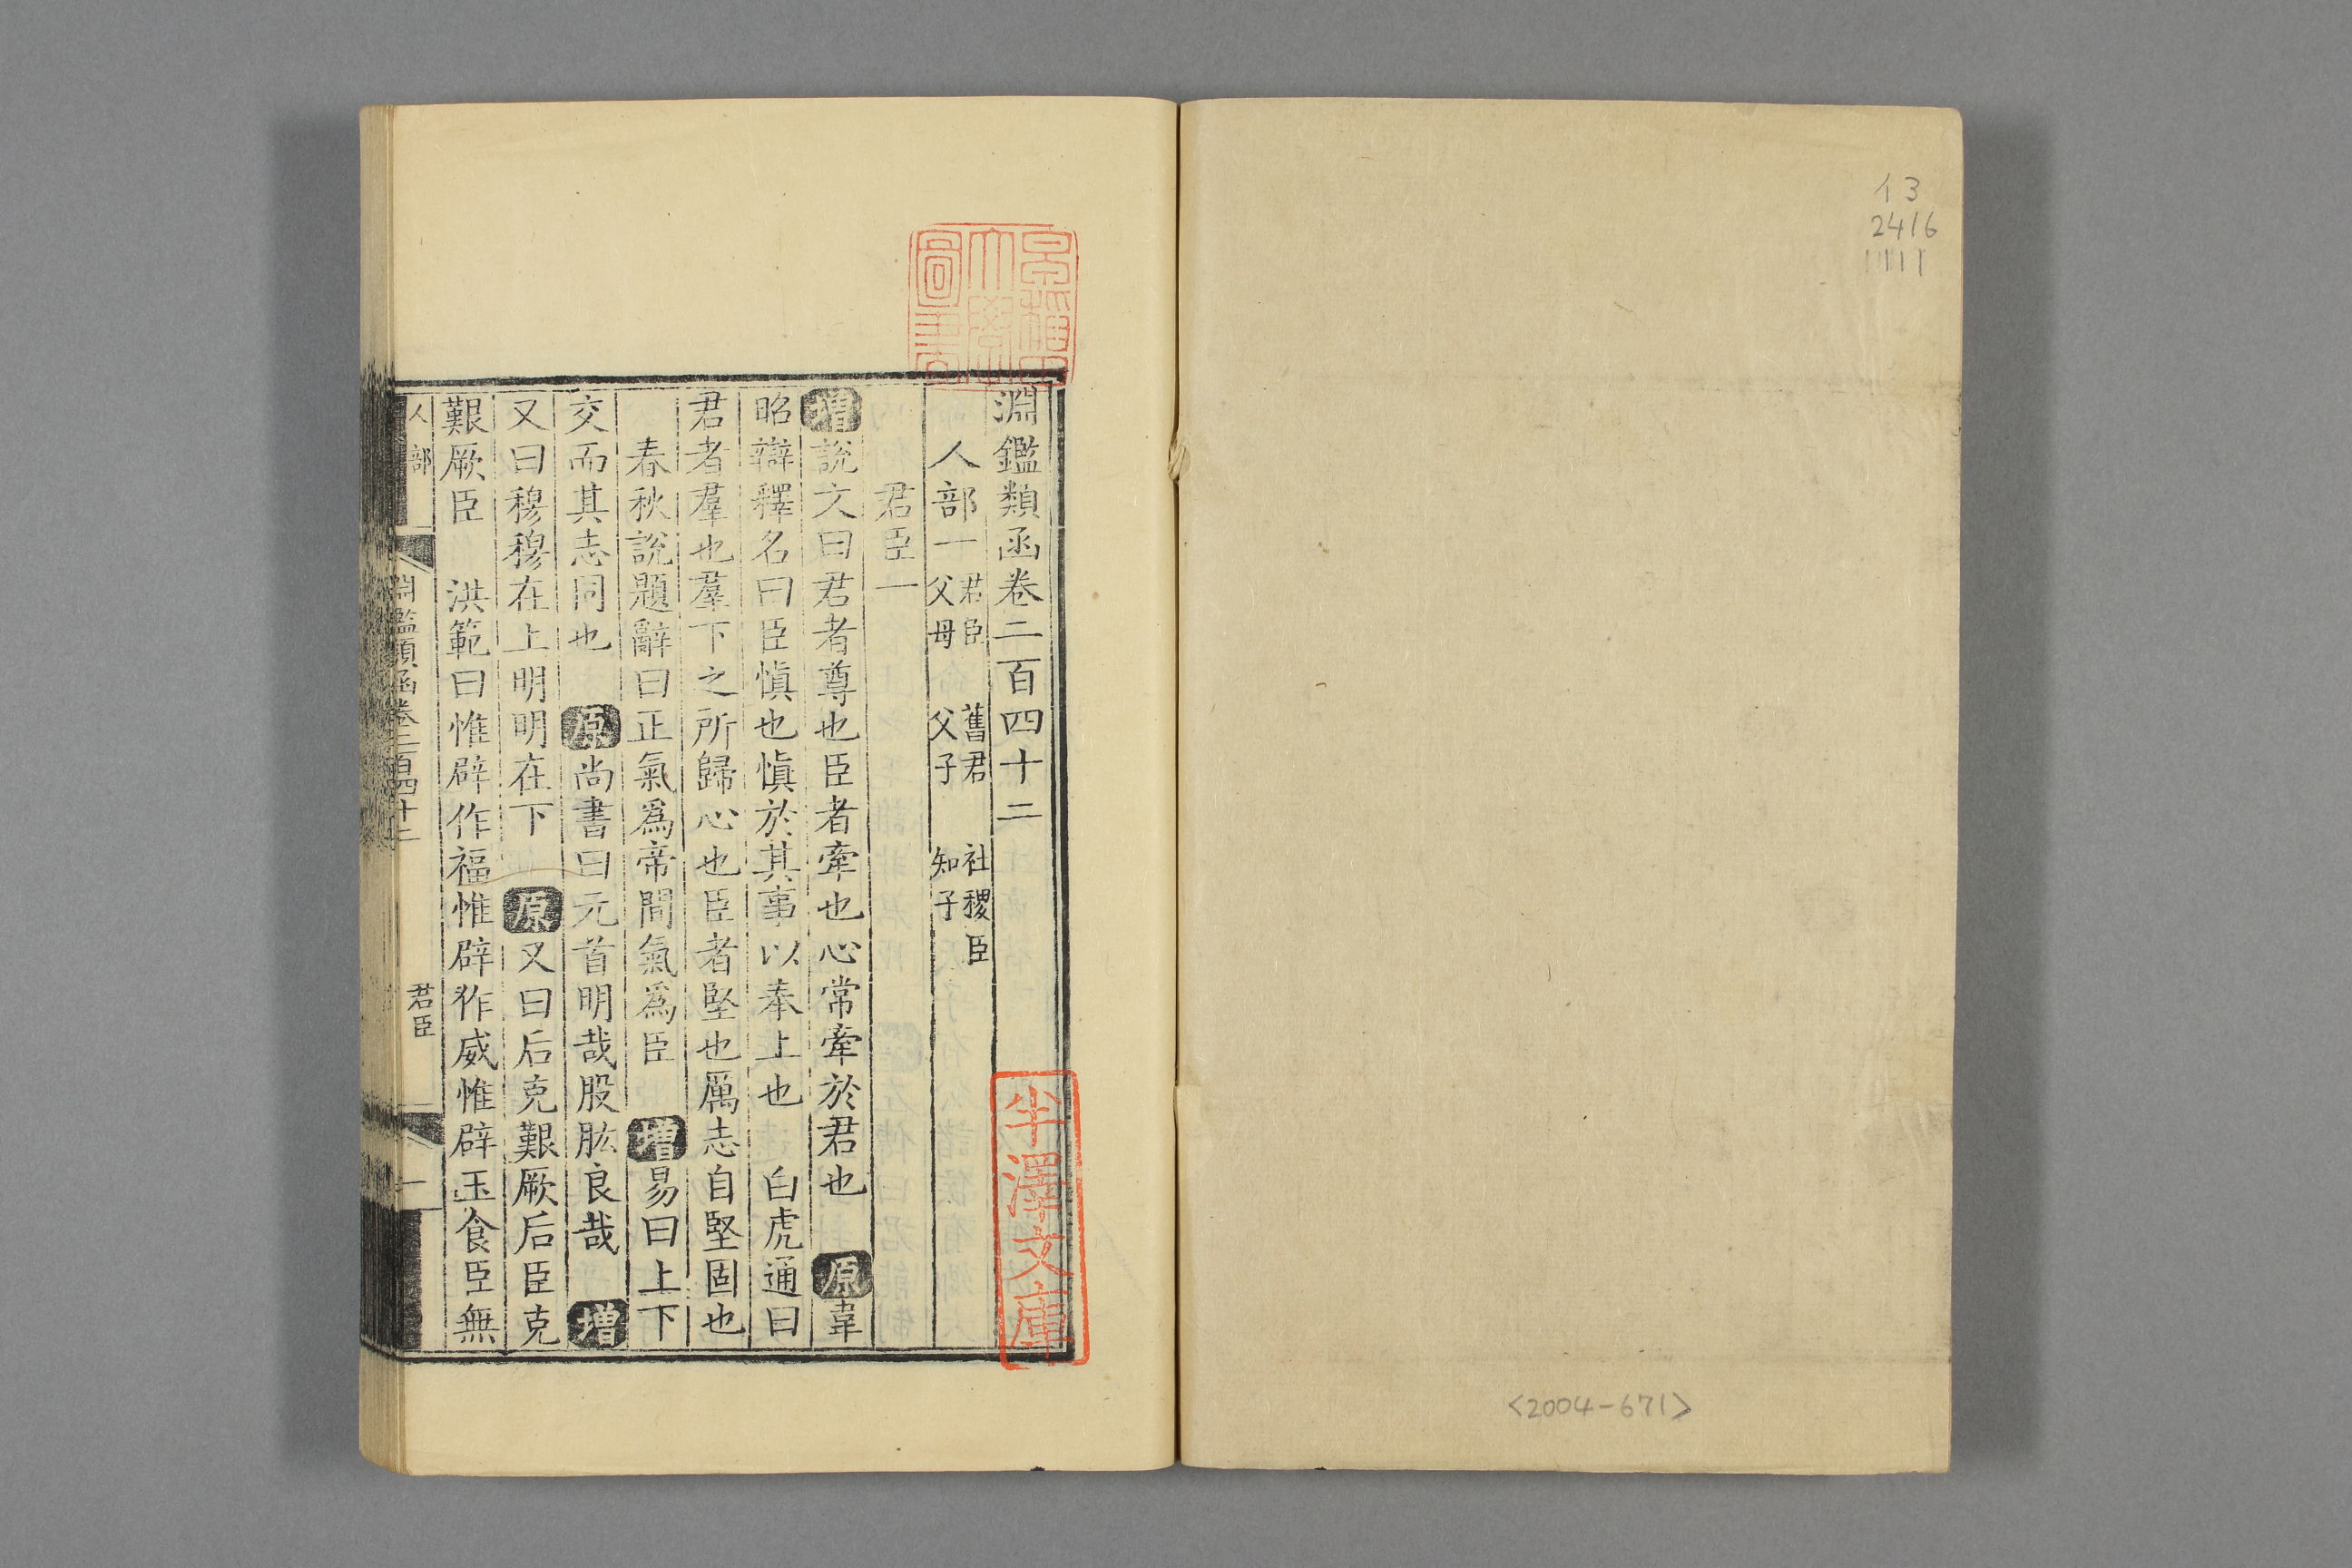 イ3
2416
11111
<2004-671>
早稲田
大學
圖書
淵鑑類函卷二百四十二
人部一 君臣 舊君 社稷臣
父母 父子 知子
君臣一
增說文曰君者尊也臣者牽也心常牽於君也 原韋
昭辯釋名曰臣慎也慎於其事以奉上也 白虎通曰
君者羣也羣下之所歸心也臣者堅也厲志自堅固也
春秋說題辭曰正氣爲帝間氣爲臣 增易曰上下
交而其志同也 原尚書曰元首明哉股肱良哉 增
又曰穆穆在上明明在下 原又曰后克艱厥后臣克
艱厥臣 洪範曰惟辟作福惟辟作威惟辟玉食臣無
人部 淵鑑類函卷二百四十二 君臣 一
半澤文庫